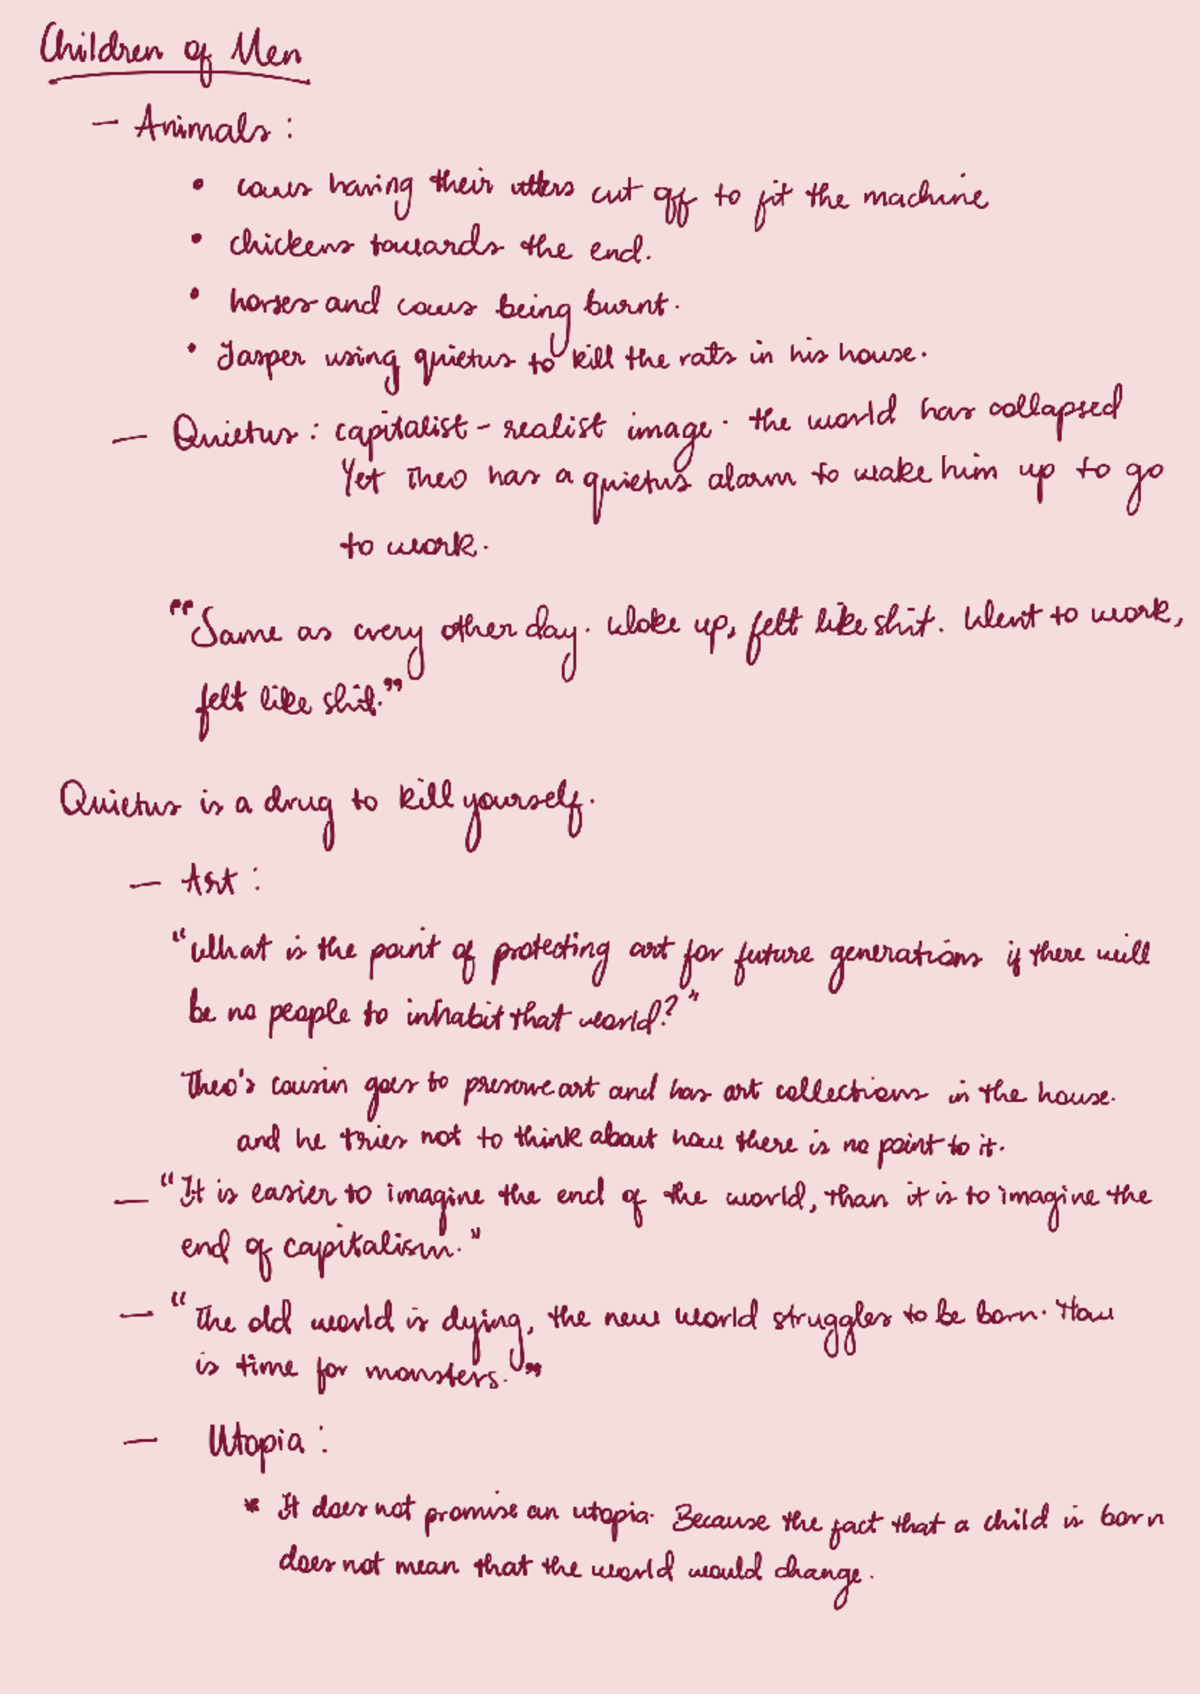 Children of Men
— Animals :
• cows having their utters cut off to fit the machine
• chickens towards the end.
• horses and cows being burnt.
• Jasper using quietus to kill the rats in his house.
— Quietus : capitalist - realist image. the world has collapsed
Yet Theo has a quietus alarm to wake him up to go
to work.
"Same as every other day. Woke up, felt like shit. Went to work,
felt like shit."
Quietus is a drug to kill yourself.
— Art :
"What is the point of protecting art for future generations if there will
be no people to inhabit that world?"
Theo's cousin goes to preserve art and has art collections in the house.
and he tries not to think about how there is no point to it.
— "It is easier to imagine the end of the world, than it is to imagine the
end of capitalism."
— "The old world is dying, the new world struggles to be born. Now
is time for monsters."
— Utopia :
* It does not promise an utopia. Because the fact that a child is born
does not mean that the world would change.